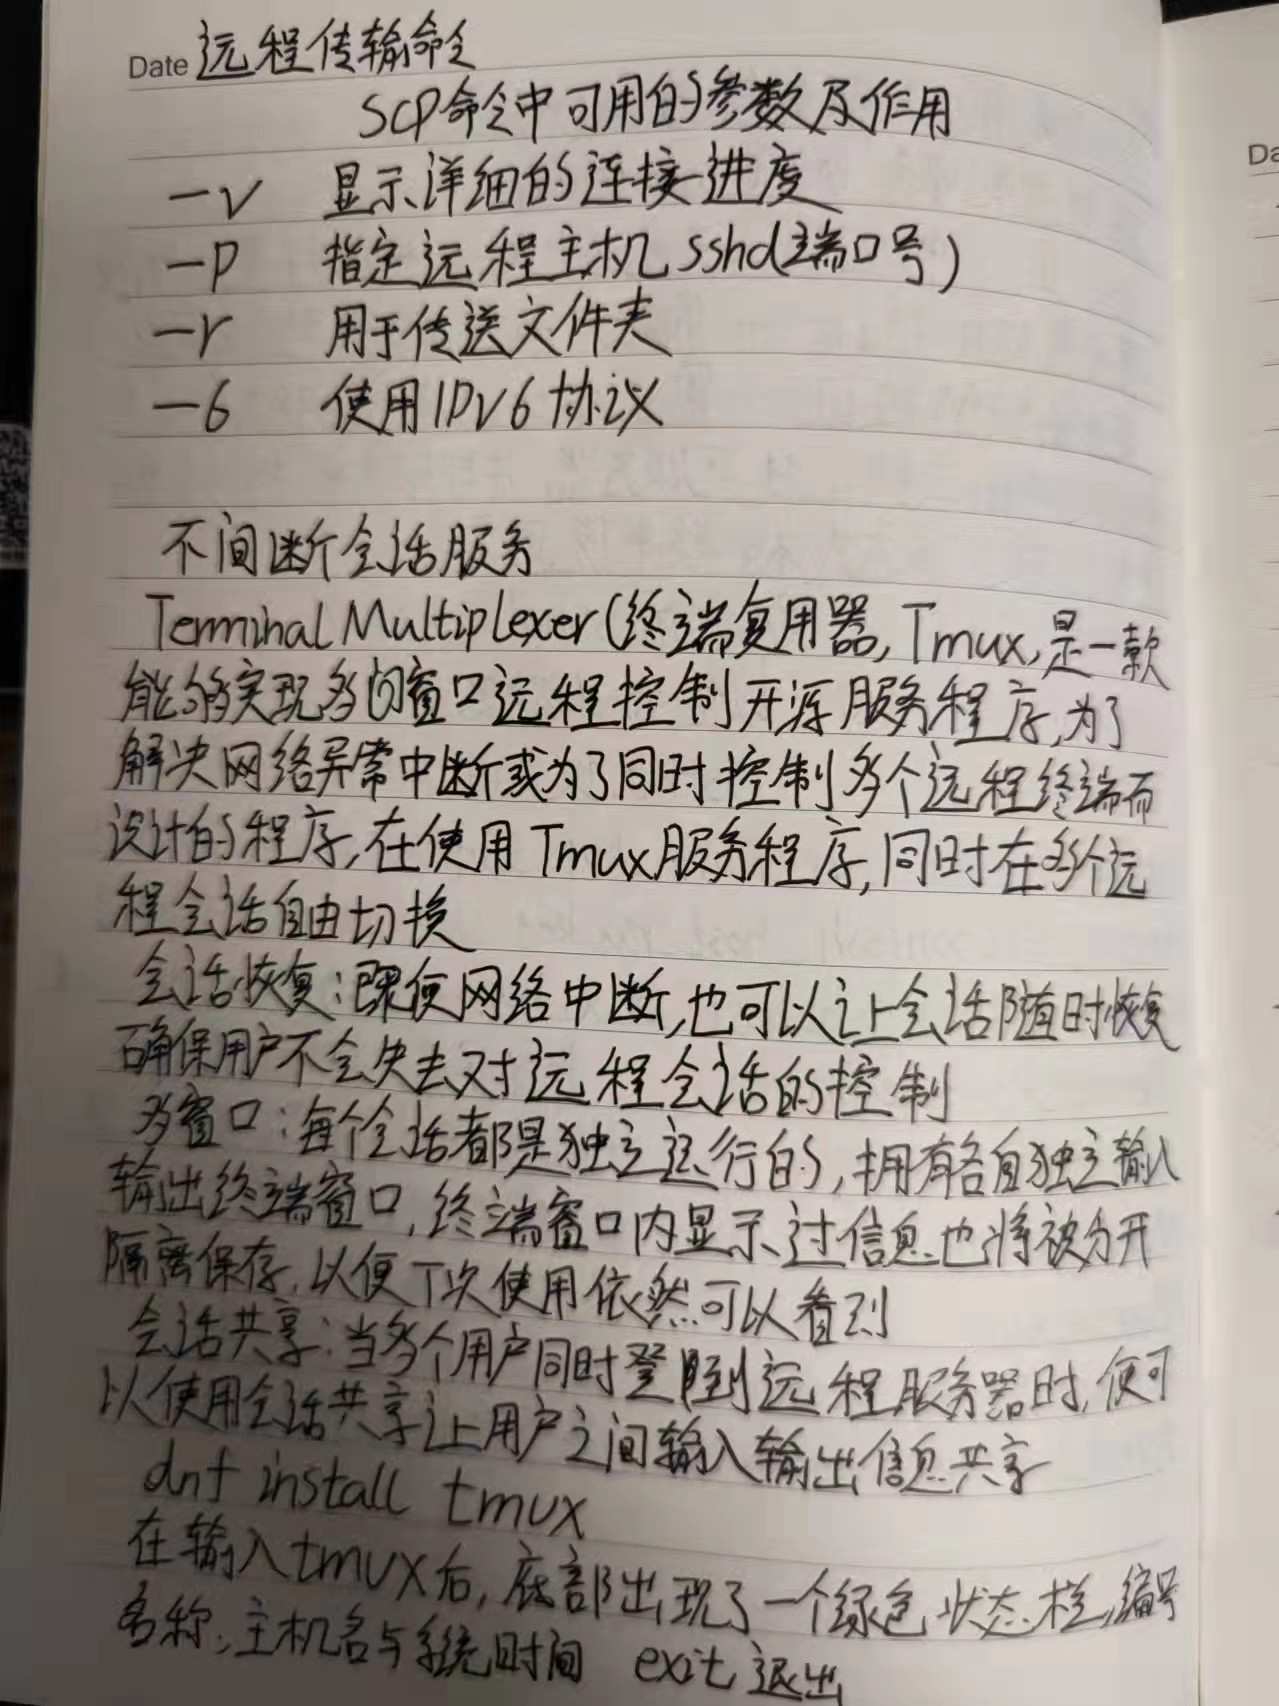 Date 远程传输命令
SCP命令中可用的参数及作用
-v 显示详细的连接进度
-P 指定远程主机sshd(端口号)
-r 用于传送文件夹
-6 使用IPV6协议
不间断会话服务
Terminal Multiplexer(终端复用器,Tmux,是一款
能够实现多窗口远程控制开源服务程序,为了
解决网络异常中断或为了同时控制多个远程终端而
设计的程序,在使用Tmux服务程序,同时在多个远
程会话自由切换
会话恢复:既使网络中断,也可以让会话随时恢复
确保用户不会失去对远程会话的控制
多窗口:每个会话都是独立运行的,拥有各自独立输入
输出终端窗口,终端窗口内显示过信息也将被分开
隔离保存,以便下次使用依然可以看到
会话共享:当多个用户同时登陆到远程服务器时,便可
以使用会话共享让用户之间输入输出信息共享
dnf install tmux
在输入tmux后,底部出现了一个绿色状态栏,编号
名称,主机名与系统时间 exit退出
Da